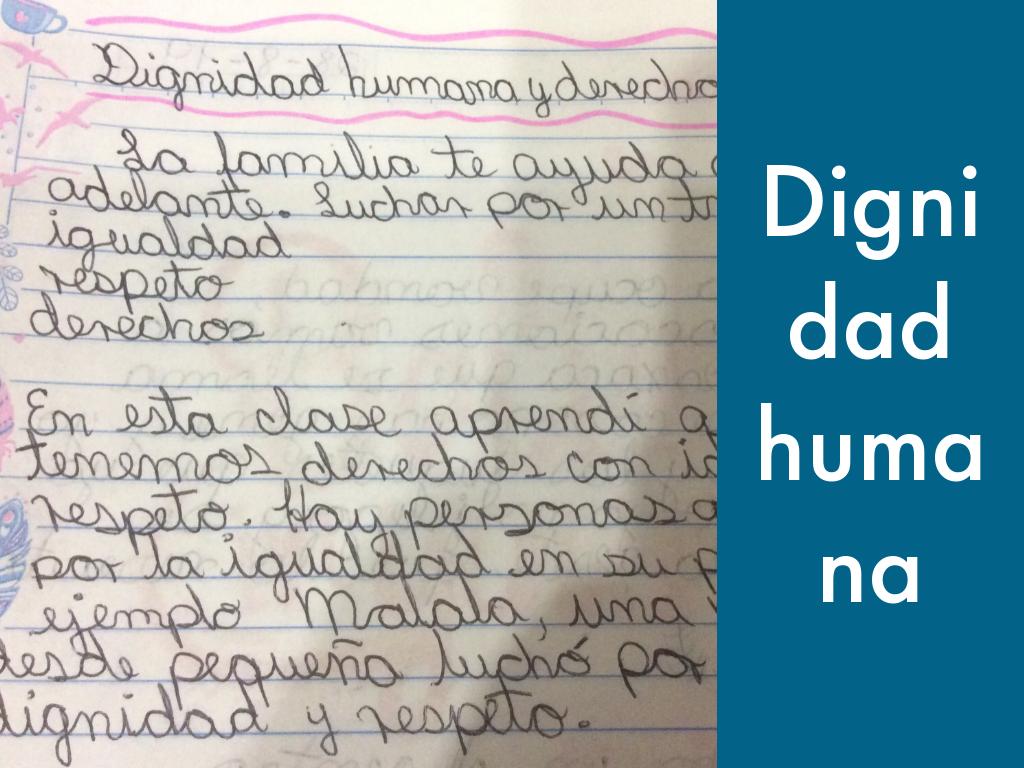 Dignidad humana y derecho
La familia te ayuda
adelante. Luchar por un tr
igualdad
respeto
derechos
En esta clase aprendí q
tenemos derechos con ig
respeto. Hay personas q
por la igualdad en su p
ejemplo Malala, una
desde pequeña luchó por
dignidad y respeto.
Digni
dad
huma
na